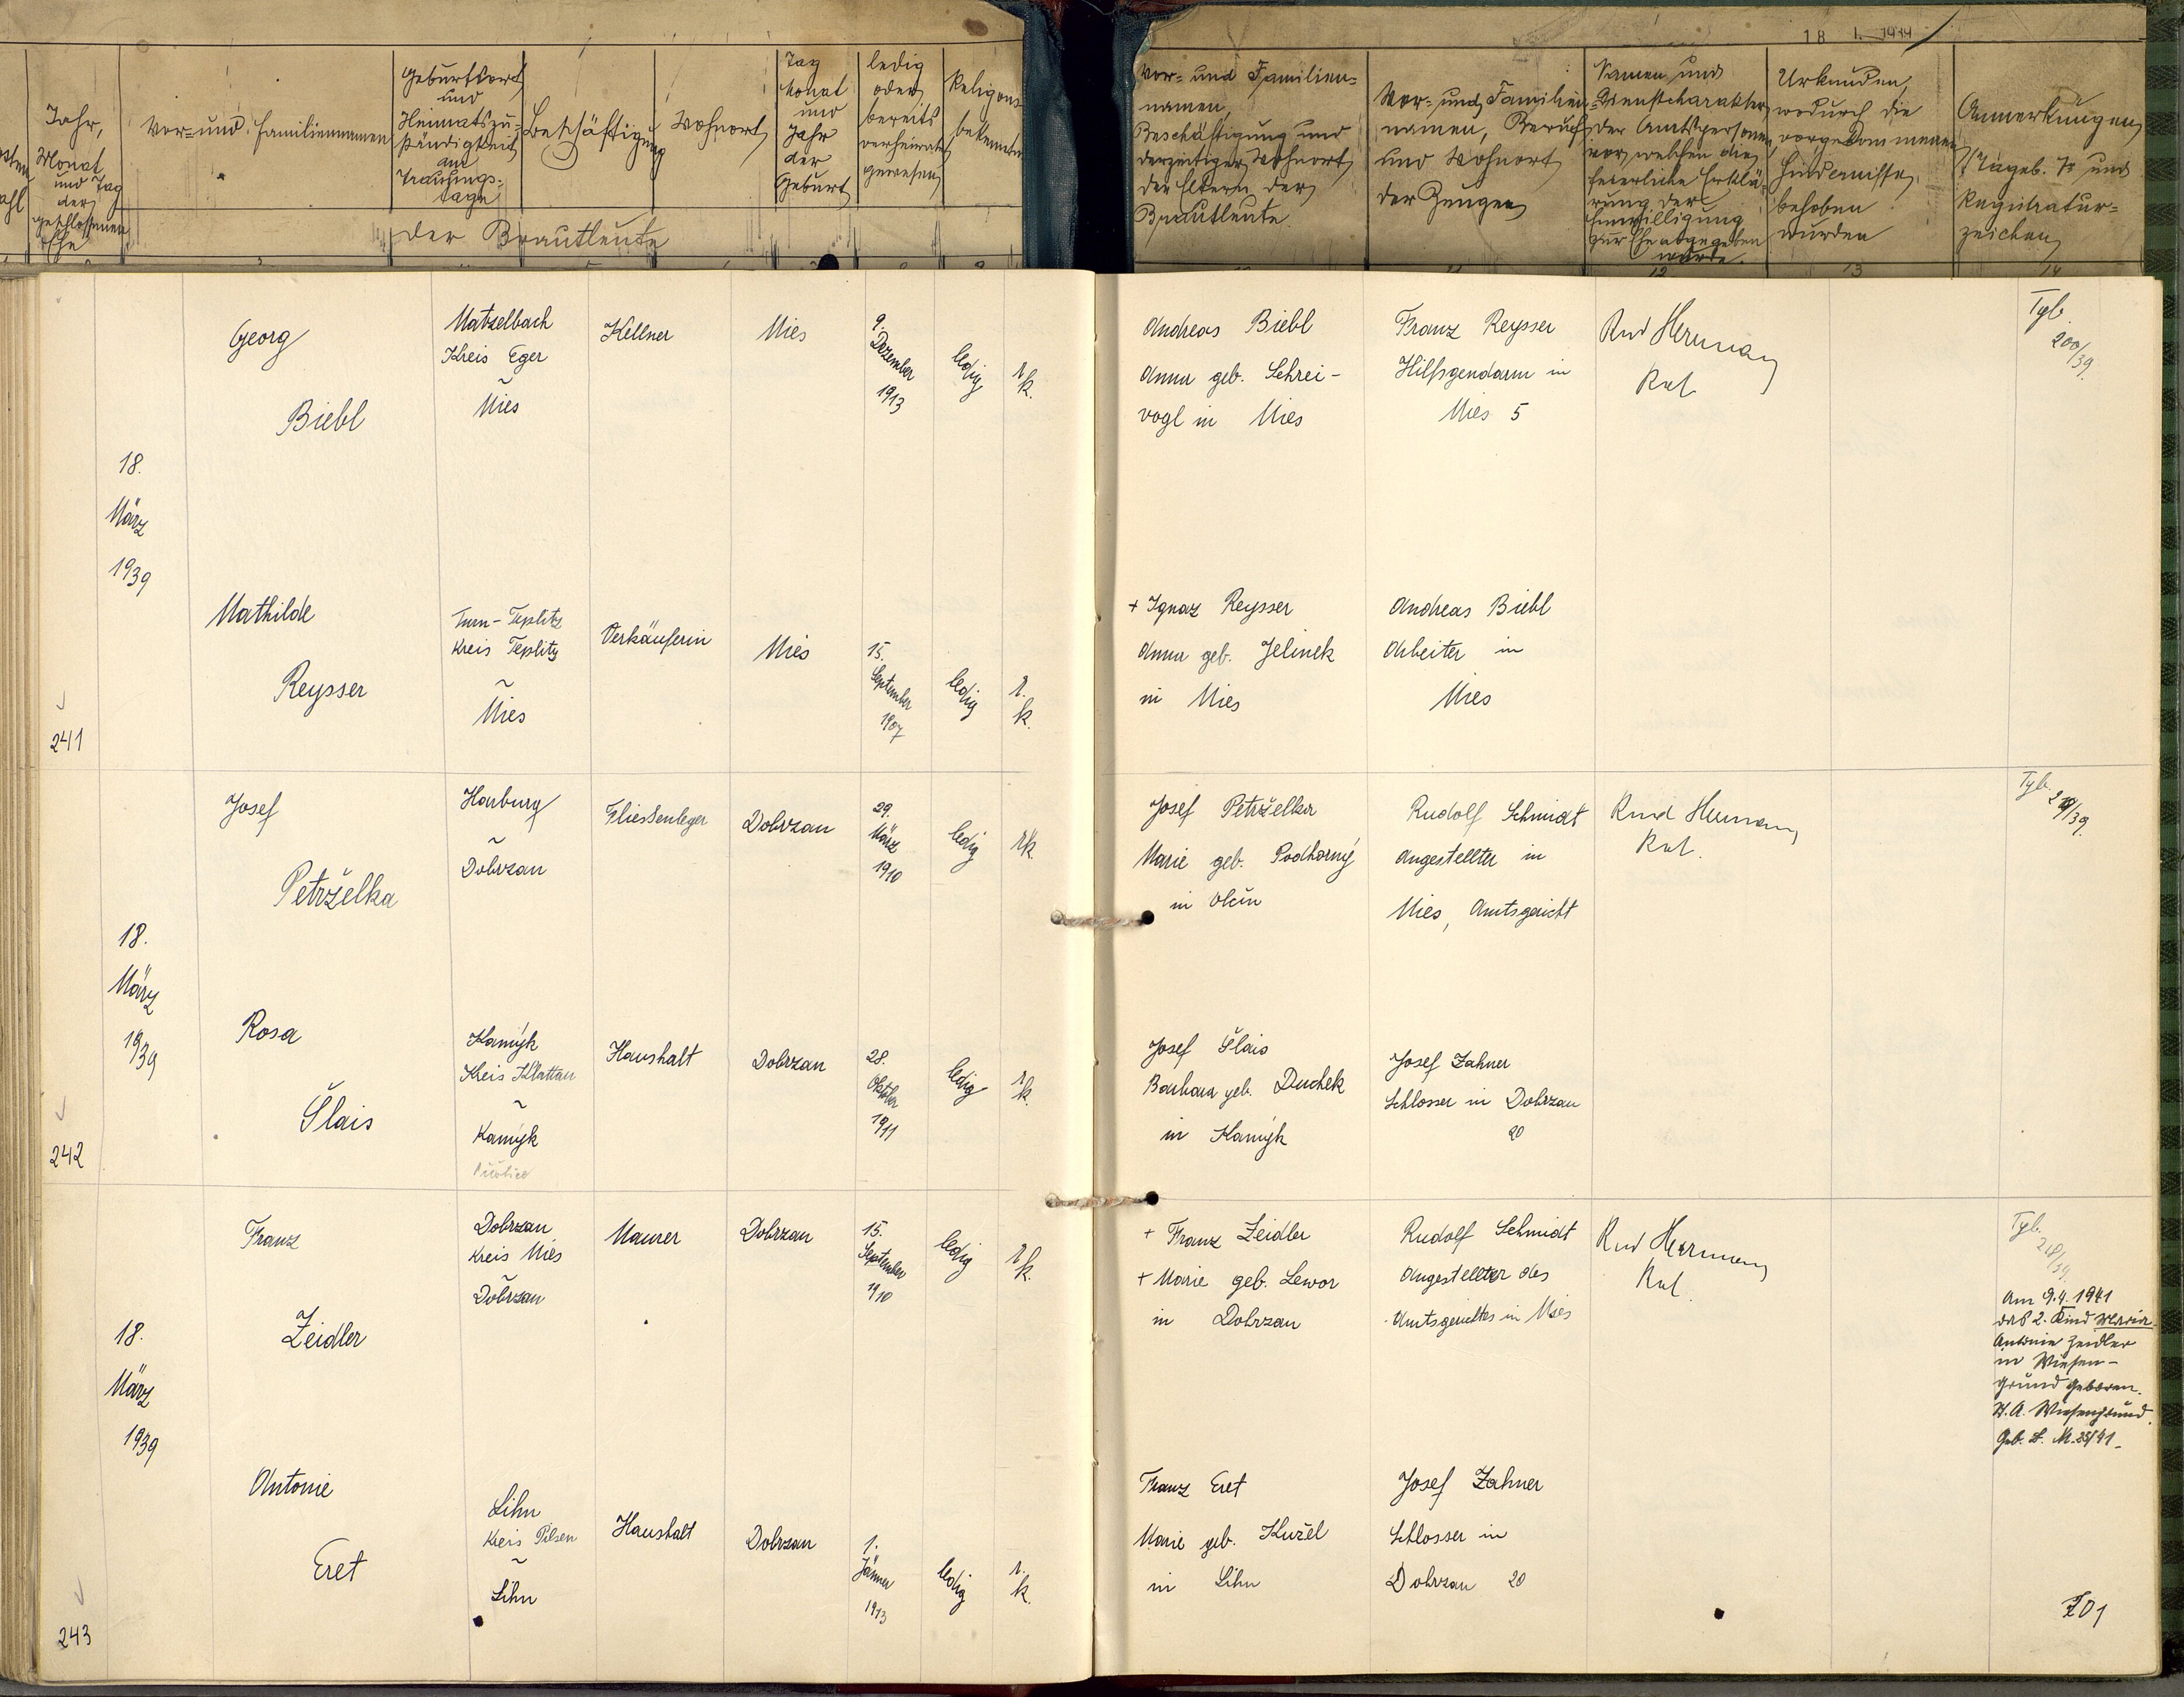 18 1. 1939
Jahr,
Monat
und Tag
der
geschlossenen
Ehe
Vor- und Familiennamen
Geburtsort
und
Heimatszu-
ständigkeit
am
Trauungs-
tage
Beschäftigung
Wohnort
Tag
Monat
und
Jahr
der
Geburt
ledig
oder
bereits
verheiratet
gewesen
Religions-
bekenntnis
der Brautleute
Vor- und Familien-
namen,
Beschäftigung und
derzeitiger Wohnort
der Eltern der
Brautleute
Vor- und Familien-
namen, Beruf
und Wohnort
der Zeugen
Namen und
Dienstcharakter
der Amtspersonen
vor welchen die
feierliche Erklä-
rung der
Einwilligung
zur Ehe abgegeben
wurde.
Urkunden,
wodurch die
vorgekommenen
Hindernisse
behoben
wurden
Anmerkungen
(Tageb. № und
Registratur-
zeichen
12
13
14
241
18.
März
1939
Georg
Biebl
Matzelbach
Kreis Eger
~
Mies
Kellner
Mies
9.
Dezember
1913
ledig
r.
k.
Andreas Biebl
Anna geb. Schrei-
vogl in Mies
Franz Reysser
Hilfsgendarm in
Mies 5
Rud Herrmann
Rat
Tgb.
200/39.
Mathilde
Reysser
Turn-Teplitz
Kreis Teplitz
~
Mies
Verkäuferin
Mies
15.
September
1907
ledig
r.
k.
+ Ignaz Reysser
Anna geb. Jelinek
in Mies
Andreas Biebl
Arbeiter in
Mies
242
18.
März
1939
Josef
Petrželka
Harburg
~
Dobrzan
Fliessenleger
Dobrzan
29.
März
1910
ledig
rk.
Josef Petrželka
Marie geb. Podhorný
in
Rudolf Schmidt
Angestellter in
Mies, Amtsgericht
Rud Herrmann
Rat.
Tgb.
Rosa
Šlais
Kamýk
Kreis Klattau
~
Kamýk
Haushalt
Dobrzan
28.
Oktober
1911
ledig
r.
k.
Josef Šlais
Barbara geb. Duchek
in Kamýk
Josef Zahner
Schlosser in Dobrzan
20
243
18.
März
1939
Franz
Zeidler
Dobrzan
Kreis Mies
~
Dobrzan
Maurer
Dobrzan
15.
September
1910
ledig
r.
k.
+ Franz Zeidler
+ Marie geb. Lewor
in Dobrzan
Rudolf Schmidt
Angestellter des
Amtsgerichtes in Mies
Rud Herrmann
Rat.
Tgb.
218/39.
Am 9.4.1941
das 2. Kind Maria
Antonie Zeidler
in Wiesen-
grund geboren.
St. A. Wiesengrund.
Geb. B. № 25/41
Antonie
Eret
Lihn
Kreis Pilsen
~
Lihn
Haushalt
Dobrzan
1.
Jänner
1913
ledig
r.
k.
Franz Eret
Marie geb. Kužel
in Lihn
Josef Zahner
Schlosser in
Dobrzan 20
201